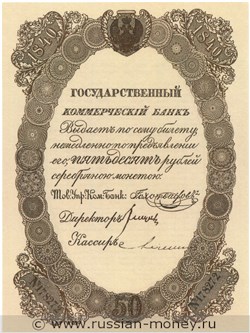 1840 1840
ГОСУДАРСТВЕННЫЙ
КОММЕРЧЕСКІЙ БАНКЪ
Выдаетъ по сему билету,
немедленно по предъявленіи
его, пятьдесятъ рублей
серебряною монетою:
Тов: Упр: Ком: Банк:
Директоръ
Кассиръ
50
© www.russian-money.ru